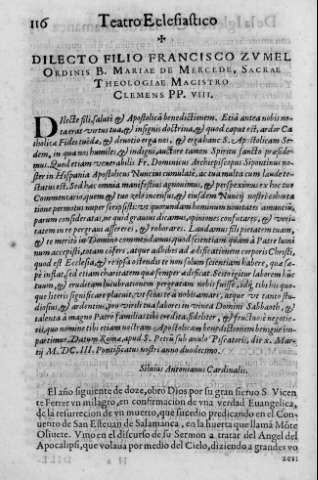 116 Teatro Eclesiastico
✠
DILECTO FILIO FRANCISCO ZVMEL
ORDINIS B. MARIAE DE MERCEDE, SACRAE
THEOLOGIAE MAGISTRO
CLEMENS PP. VIII.
Dilecte fili, salutē & Apostolicā benedictionem. Etiā antea nobis no-
ta erat virtus tua, & insignis doctrina, & quod caput est, ardor Ca
tholica Fidei tuēda, & deuotio erga nos, & erga hanc S. Apostolicam Se-
dem, in qua nos humiles, & indigni, auctore tantum Spiritu sancto præsidē-
mus. Quod etiam venerabilis Fr. Dominicus Archiepiscopus Sipontinus no-
ster in Hispania Apostolicus Nuncius cumulatè, ac tua multa cum laude te-
status est. Sed hæc omnia manifestius agnouimus, & perspeximus ex hoc tuo
Commentario, quem & tuo
tione permisu nuper scripsisti: ve quorundam hominum nouitatis amantiū,
parum consideratas, ne quid grauius dicamus, opiniones confutares, & veri-
tatem in re pergraui assereres, & roborares. Laudamus fili pietatem tuam,
& te meritò in Domino commendamus, quod scientiam quàm à Patre lumi
num accepisti, totam cōfers, atque adhibes ad ædificationem corporis Christi,
quod est Ecclesia, & reipsa ostendis te non solum scientiam habere, qua sæ-
pè inflat, sed etiam charitatem qua semper ædificat. Scito igitur laborem hūc
tuum, & eruditam lucubrationem pergratam nobis fuisse, idq, tibi his quo
que literis significare placuit, vt scias te à nobis amari, atque vt tanto stu-
diosius, & ardentius, pro virili tua labores in vinea Domini Sabbaoth, &
talenta à magno Patre familias tibi credita, fideliter, & fructuosè negotie-
ris, quo nomine tibi etiam nostram Apostolicam benedictionem benignè im-
partimur. Datum Romæ, apud S. Petrū sub anulo Piscatoris, die x. Mar-
tij M.DC.III. Pontificatus nostri anno duodecimo.
Siluius Antonianus Cardinalis.
El año siguiente de doze, obró Dios por su gran sieruo S. Vicen
te Ferrer vn milagro, en confirmacion de vna verdad Euangelica,
de la resurreccion de vn muerto, que sucedio predicando en el Con
uento de San Esteuan de Salamanca, en la huerta que llamā Mōte
Oliuete. Vino en el discurso de su Sermon a tratar del Angel del
Apocalipsi, que volaua por medio del Cielo, diziendo a grandes vo